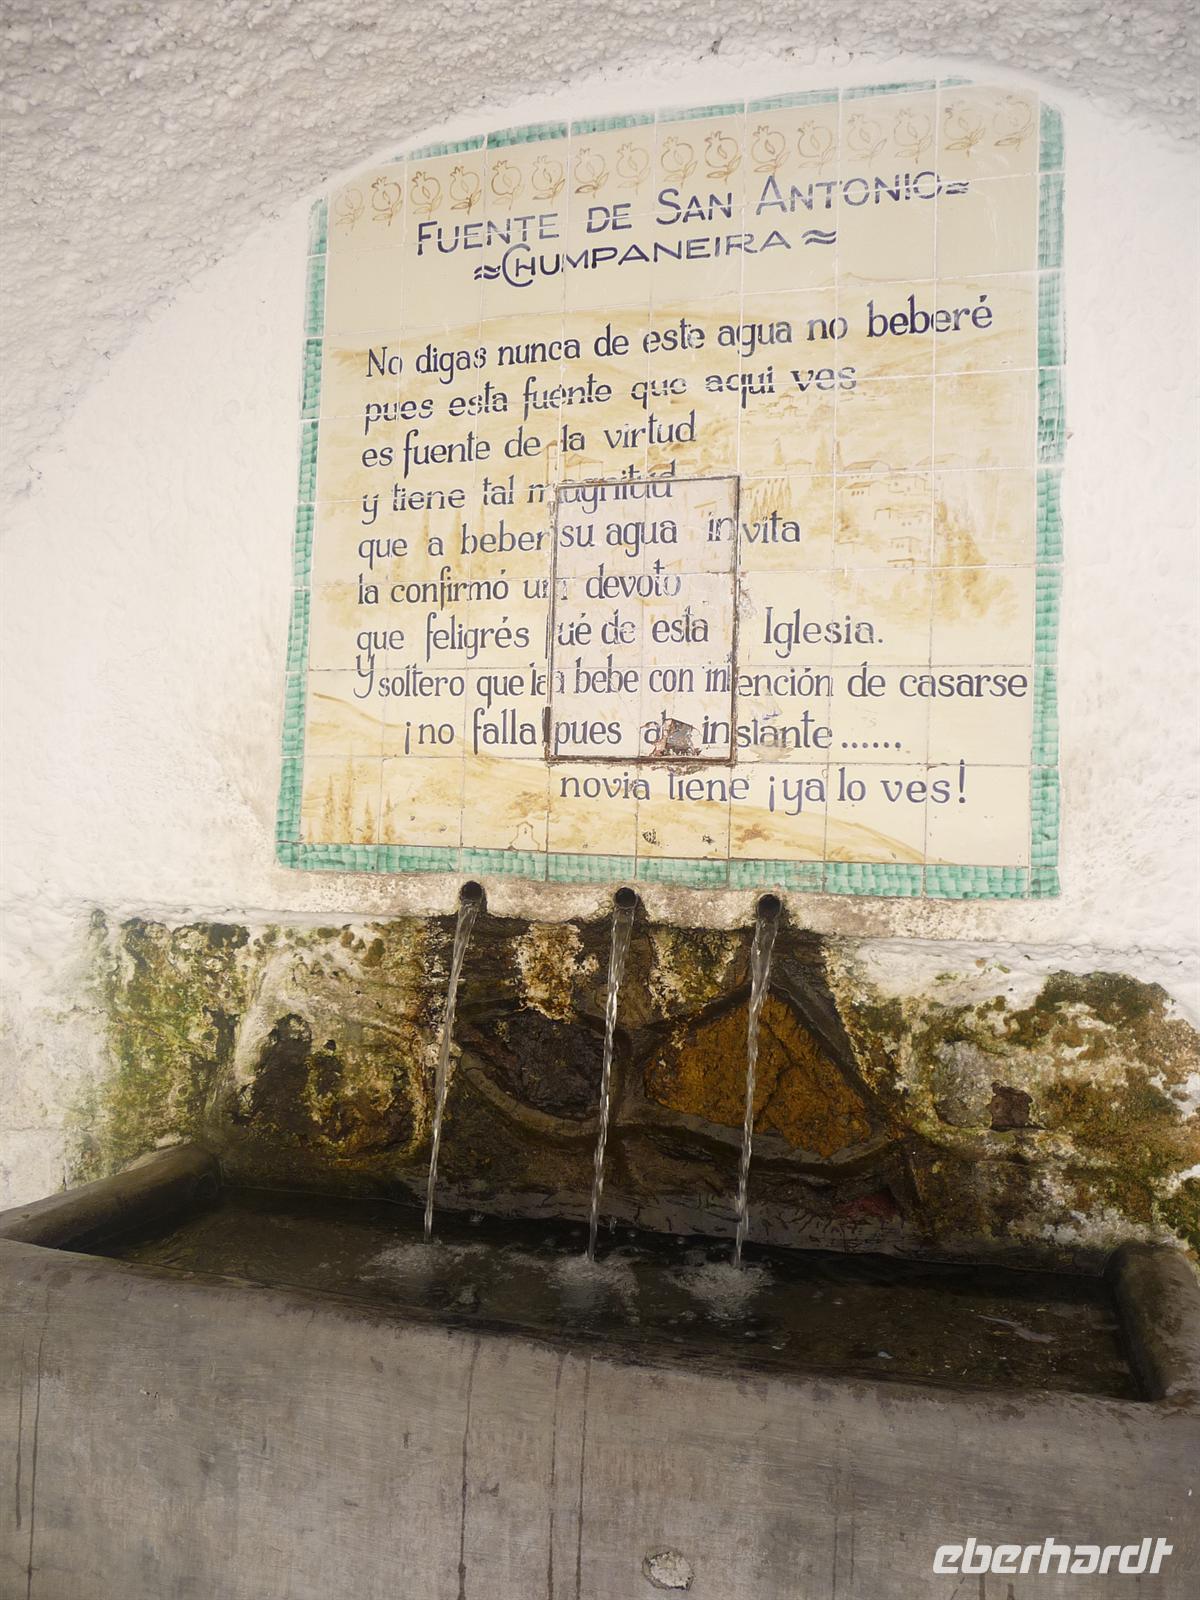 FUENTE DE SAN ANTONIO
CHUMPANEIRA
No digas nunca de este agua no beberé
pues esta fuente que aqui ves
es fuente de la virtud
y tiene tal magnitud
que a beber su agua invita
la confirmó un devoto
que feligrés fué de esta Iglesia.
Y soltero que la bebe con intención de casarse
¡no falla pues al instante......
novia tiene ¡ya lo ves!
eberhardt